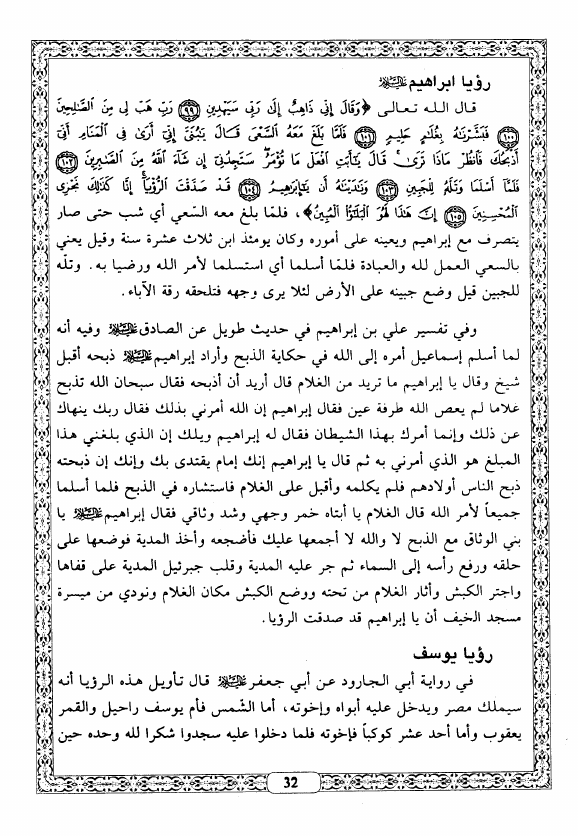 رؤيا ابراهيم عليه السلام
قال الله تعالى ﴿وَقَالَ إِنِّي ذَاهِبٌ إِلَىٰ رَبِّي سَيَهْدِينِ ﴿٩٩﴾ رَبِّ هَبْ لِي مِنَ الصَّالِحِينَ
﴿١٠٠﴾ فَبَشَّرْنَاهُ بِغُلَامٍ حَلِيمٍ ﴿١٠١﴾ فَلَمَّا بَلَغَ مَعَهُ السَّعْيَ قَالَ يَا بُنَيَّ إِنِّي أَرَىٰ فِي الْمَنَامِ أَنِّي
أَذْبَحُكَ فَانْظُرْ مَاذَا تَرَىٰ قَالَ يَا أَبَتِ افْعَلْ مَا تُؤْمَرُ سَتَجِدُنِي إِنْ شَاءَ اللَّهُ مِنَ الصَّابِرِينَ ﴿١٠٢﴾
فَلَمَّا أَسْلَمَا وَتَلَّهُ لِلْجَبِينِ ﴿١٠٣﴾ وَنَادَيْنَاهُ أَنْ يَا إِبْرَاهِيمُ ﴿١٠٤﴾ قَدْ صَدَّقْتَ الرُّؤْيَا إِنَّا كَذَٰلِكَ نَجْزِي
الْمُحْسِنِينَ ﴿١٠٥﴾ إِنَّ هَٰذَا لَهُوَ الْبَلَاءُ الْمُبِينُ﴾، فلمّا بلغ معه السّعي أي شب حتى صار
يتصرف مع إبراهيم ويعينه على أموره وكان يومئذ ابن ثلاث عشرة سنة وقيل يعني
بالسعي العمل لله والعبادة فلمّا أسلما أي استسلما لأمر الله ورضيا به. وتلّه
للجبين قيل وضع جبينه على الأرض لئلا يرى وجهه فتلحقه رقة الآباء.
وفي تفسير علي بن إبراهيم في حديث طويل عن الصادق عليه السلام وفيه أنه
لما أسلم إسماعيل أمره إلى الله في حكاية الذبح وأراد إبراهيم عليه السلام ذبحه أقبل
شيخ وقال يا إبراهيم ما تريد من الغلام قال أريد أن أذبحه فقال سبحان الله تذبح
غلاما لم يعص الله طرفة عين فقال إبراهيم إن الله أمرني بذلك فقال ربك ينهاك
عن ذلك وإنما أمرك بهذا الشيطان فقال له إبراهيم ويلك إن الذي بلغني هذا
المبلغ هو الذي أمرني به ثم قال يا إبراهيم إنك إمام يقتدى بك وإنك إن ذبحته
ذبح الناس أولادهم فلم يكلمه وأقبل على الغلام فاستشاره في الذبح فلما أسلما
جميعاً لأمر الله قال الغلام يا أبتاه خمر وجهي وشد وثاقي فقال إبراهيم عليه السلام يا
بني الوثاق مع الذبح لا والله لا أجمعها عليك فأضجعه وأخذ المدية فوضعها على
حلقه ورفع رأسه إلى السماء ثم جر عليه المدية وقلب جبرئيل المدية على قفاها
واجتر الكبش وأثار الغلام من تحته ووضع الكبش مكان الغلام ونودي من ميسرة
مسجد الخيف أن يا إبراهيم قد صدقت الرؤيا.
رؤيا يوسف
في رواية أبي الجارود عن أبي جعفر عليه السلام قال تأويل هذه الرؤيا أنه
سيملك مصر ويدخل عليه أبواه وإخوته، أما الشّمس فأم يوسف راحيل والقمر
يعقوب وأما أحد عشر كوكباً فإخوته فلما دخلوا عليه سجدوا شكرا لله وحده حين
32